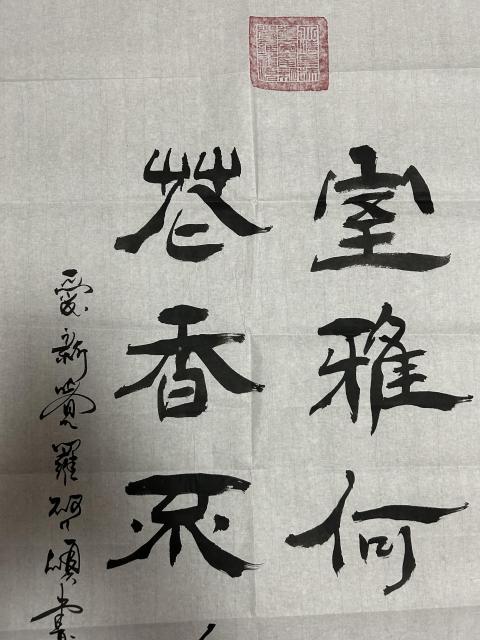 室雅何
花香不
愛新覺羅